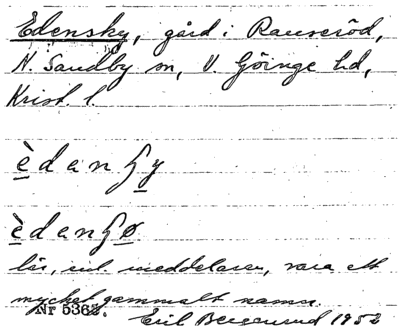 Edensky, gård i Rauseröd,
N. Sandby sn, V. Göinge hd,
Krist. l.
èdanʃy
èdanʃø
lär, enl. meddelaren, vara ett
mycket gammalt namn.
Nr 5362.
Eril 1952